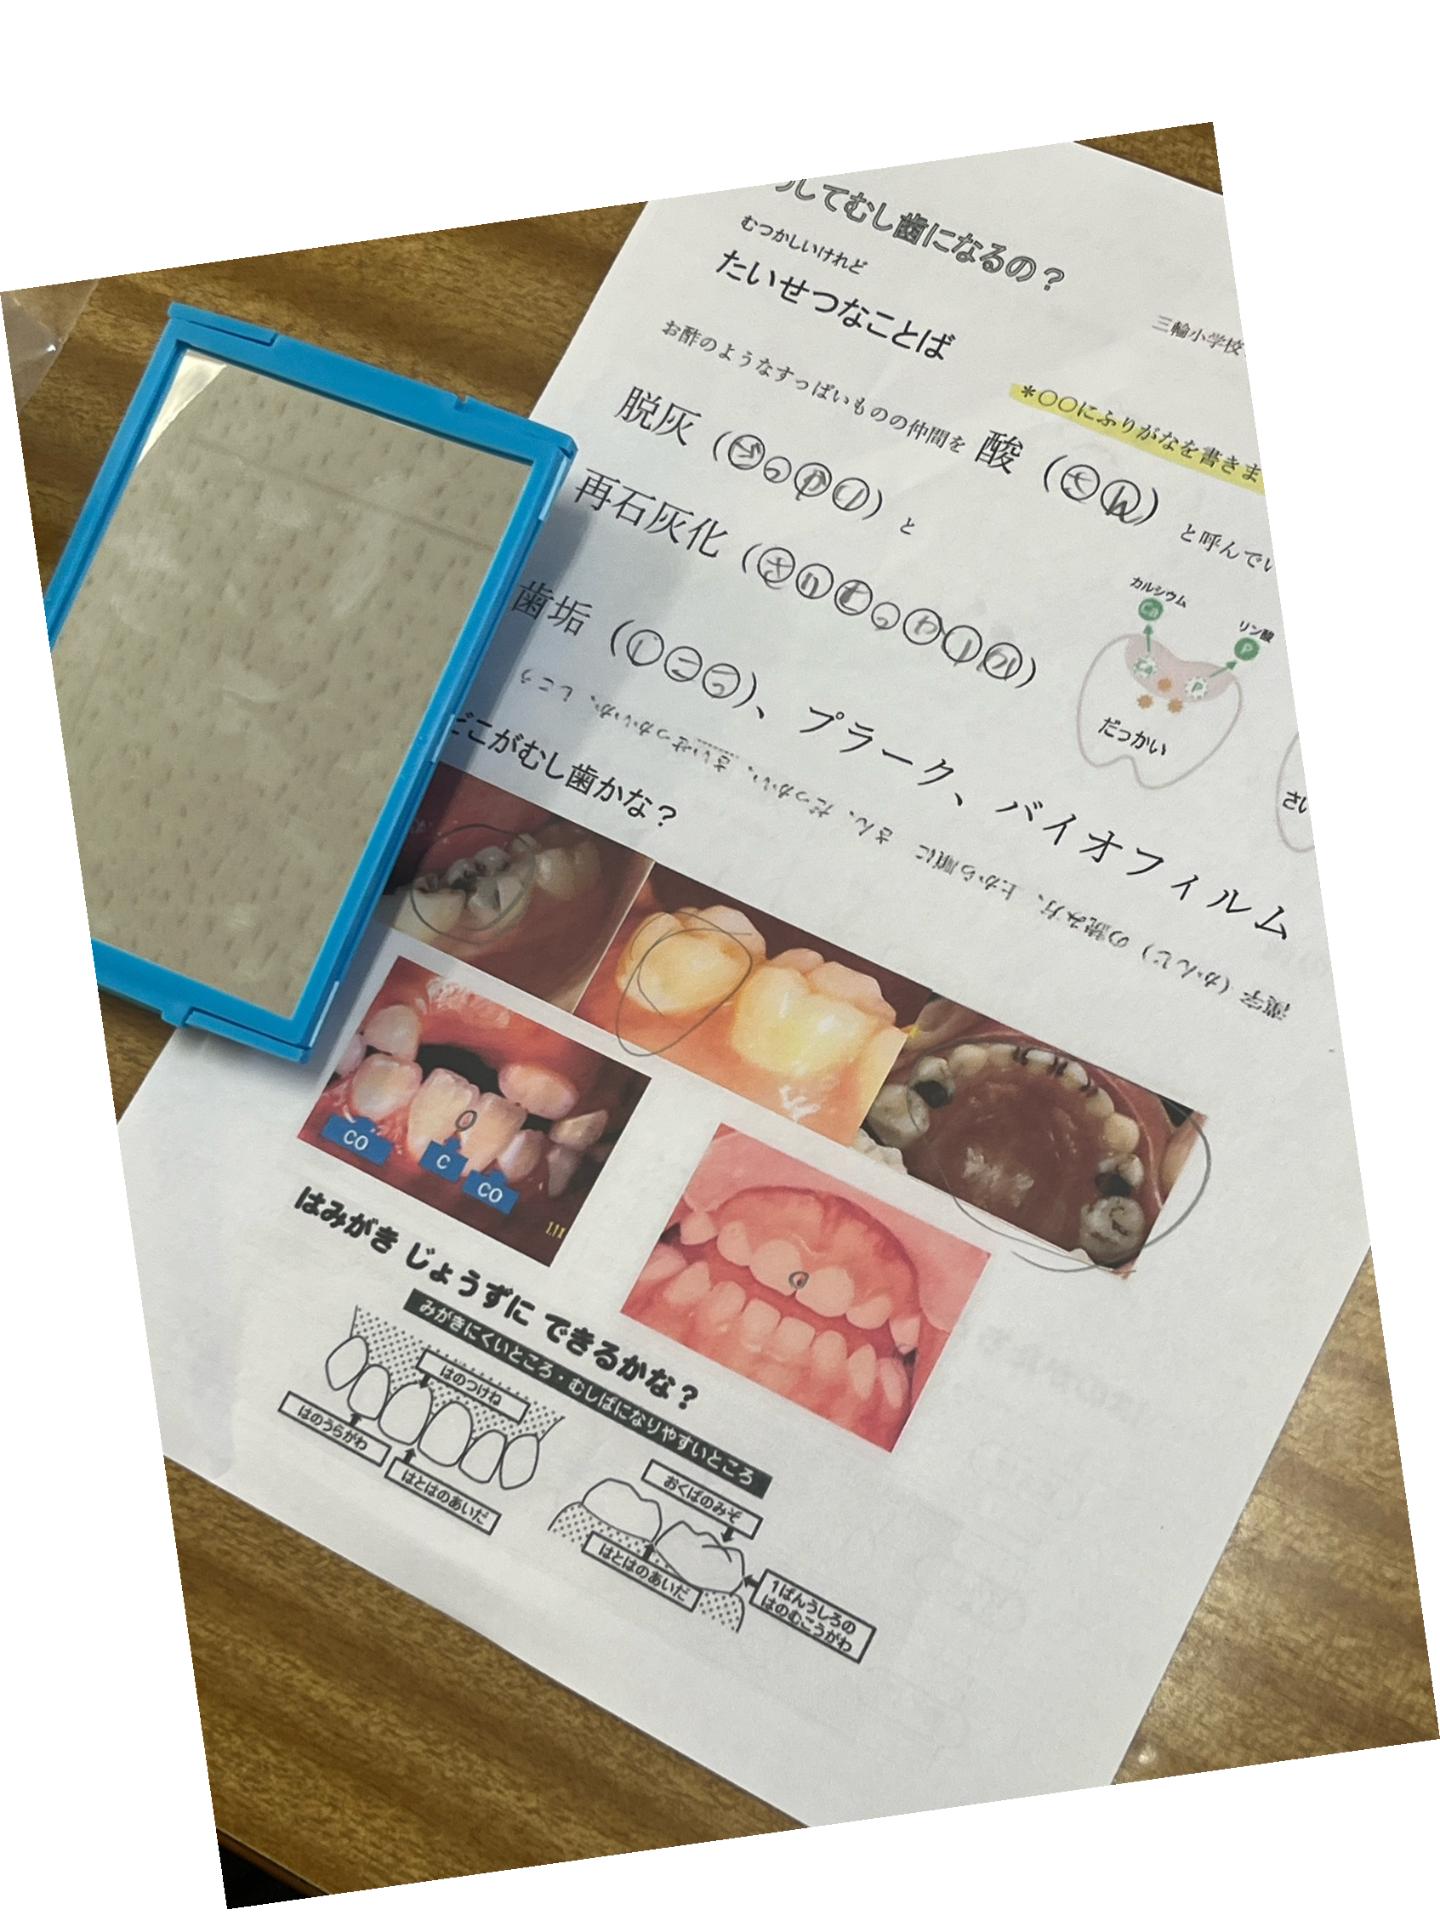 うしてむし歯になるの？
むつかしいけれど
たいせつなことば
三輪小学校
＊〇〇にふりがなを書きま
お酢のようなすっぱいものの仲間を 酸（さん）と呼んでい
脱灰（だっかい）と
再石灰化（さいせっかいか）
歯垢（しこう）、プラーク、バイオフィルム
漢字（かんじ）の読み方、上から順に さん、だっかい、さいせっかいか、しこう
カルシウム
Ca
リン酸
P
CA
P
だっかい
さい
どこがむし歯かな？
CO
C
CO
はみがき じょうずに できるかな？
みがきにくいところ・むしばになりやすいところ
はのつけね
はのうらがわ
はとはのあいだ
おくばのみぞ
はとはのあいだ
1ばんうしろの
はのむこうがわ